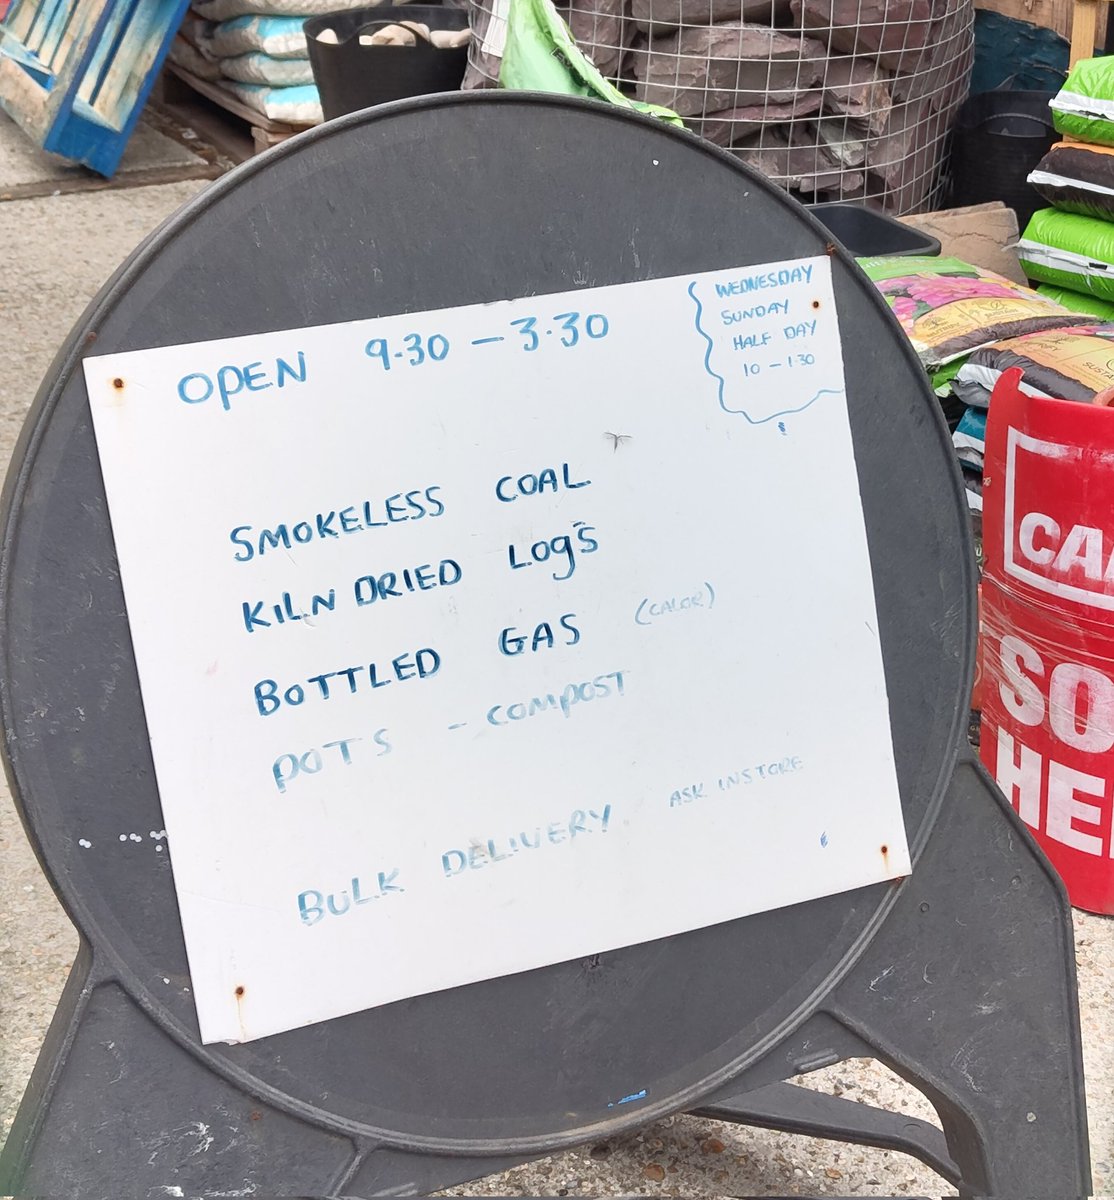 OPEN 9.30 – 3.30
WEDNESDAY
SUNDAY
HALF DAY
10 – 1.30
SMOKELESS COAL
KILN DRIED LOgS
BOTTLED GAS (CALOR)
POTS - COMPOST
BULK DELIVERY ASK INSTORE
CA
SO
HE